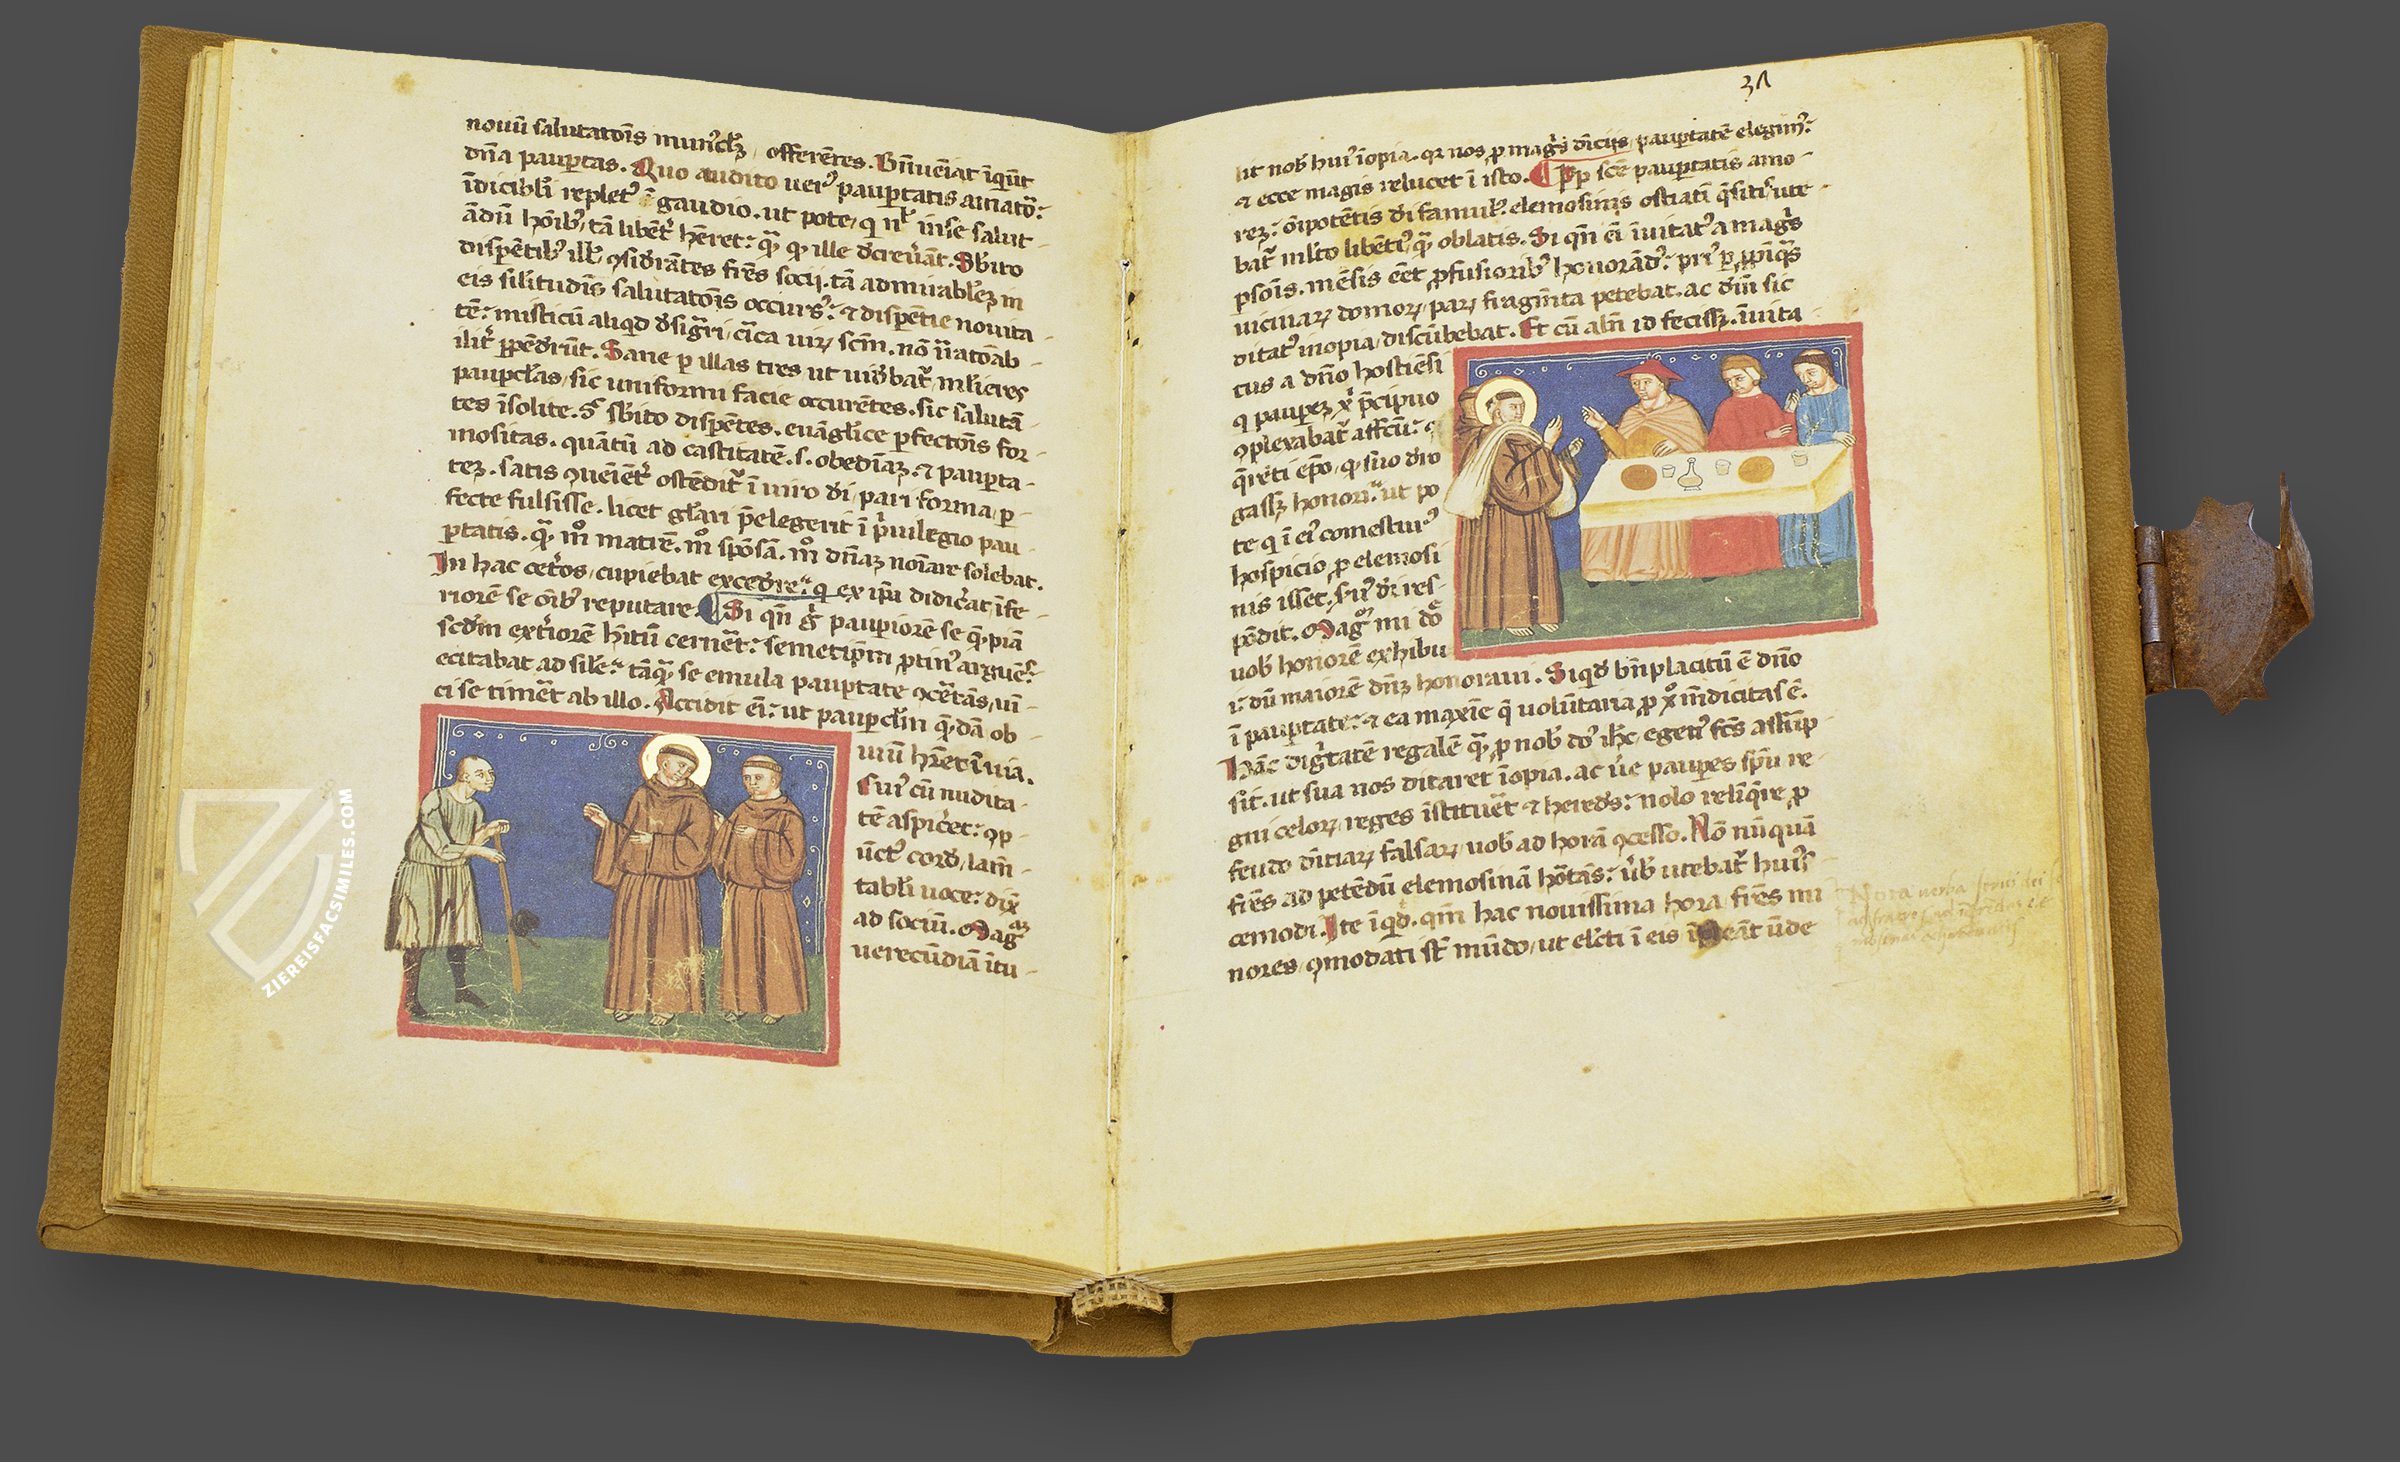 nouū salutatōis mun᾽cl̄ꝫ, offerētes. Bn̄uēiat īqūt
dn̄a paup̄tas. Quo audito uer᾽ paup̄tatis amatoꝛ᾽:
īdicibl̄i replet᾽ ē gaudio. ut pote, q nl̄ in se salut-
ādū hoīb᾽, tā libēt᾽ hēret: qͣ qd ille dec᾽uāt. Sb̄ito
dispētib᾽ ill᾽, ꝯsid᾽ātes fr̄es socij. tā admirabl̄eꝫ in
eis silitudīs salutatōis occurs᾽: ⁊ dispētie nouita-
tē: misticū aliqd dsigͣri, c᾽ca uiꝝ scm̄. nō īr̄atōab-
ilit᾽ ꝑpēdr̄ūt. Sane ꝑ illas tres ut uid᾽bat᾽, ml̄ieres
paupcl̄as, sic uniformi facie occurētes. sic salutā-
tes īsolite. ⁊ sb̄ito dispētes. euāgl̄ice ꝑfectōis for-
mositas. quātū ad castitatē. s. obedīaꝫ. ⁊ paup̄ta-
teꝫ. satis ꝯueīēt᾽ ostēdit᾽ ī uiro di, pari forma, ꝑ-
fecte fulsisse. licet gl̄ari p̄elegerit ī p᾽uilegio pau-
ꝑtatis. qͣ. mͦ matrē. mͦ spōsā. mͦ dn̄aꝫ noīare solebat.
In hac cet᾽os, cupiebat excedre: q ex ip̄a didic᾽at, īfe-
riorē se oīb᾽ reputare. Si qn̄ g᾽ paupiorē se qͤpiā
scdm ext᾽iorē hītū cernēt: semetip̄m ꝓtin᾽ arguēs.
ecitabat ad sile: tāqͣ se emula pauptate ꝯc᾽tās, uī-
ci se timēt ab illo. Accidit eī: ut paupcl̄m qͤdā ob-
uiū hr̄et ī uia.
Cui᾽ cū nudita-
tē aspic᾽et: ꝯp-
ūct᾽ cord᾽, lam̄-
tabl̄i uoce: dix̄
ad sociū. Mag̃
uerecūdiā ītu-
lit nob᾽ hui᾽ īopia. qꝛ nos ꝓ mag᾽s dīcijs, paup̄tatē elegim᾽:
⁊ ecce magis relucet ī isto. Ꝓp sc̄e paup̄tatis amo-
reꝫ: oīpotētis di famul᾽. elemosinis ostiatī q᾽sitis, ute-
bat᾽ ml̄to libēti᾽, qͣ oblatis. Si qn̄ eī īuitat᾽ a mag᾽s
ꝑsōis. mēsis eēt ꝓfusiorib᾽ honorād᾽: pri᾽ ꝑ ꝓpīqͣs
uicinaꝝ domoꝝ, paꝝ fragm̄ta petebat. ac dm̄ sic
ditat᾽ inopia, discūbebat. Et cū aln̄ id feciss, īuita-
tus a dn̄o hostiēsi
q pauꝑeꝫ xp̄i p᾽cipuo
ꝯplexabat᾽ affcū:
q᾽rēti ep̄o, qd suo dro-
gasss honori: ut po-
te, q ī ei᾽ comestur᾽
hospicio, ꝓ elemosi-
nis isset. Uir di res-
pōdit. Mag᾽ mi dn̄e
uob᾽ honorē exhibu-
i: dū maiorē dn̄ꝫ honoraui. Siqd bn̄placitū ē dn̄o
ī paup̄tate: ⁊ ea maxīe q̄ uolūtaria ꝓ xp̄o mēdicitas ē.
Hāc dig᾽tatē regalē qͣ, ꝓ nob᾽ dn̄s ih̄c, egen᾽ fc̄s assūp-
sit. ut sua nos ditaret īopia. ac ue᾽ paupes sp̄u re-
gni celoꝝ, reges īstituēt ⁊ heredes: nolo relīq᾽re ꝓ
feudo diuitiaꝝ falsaꝝ, uob᾽ ad horā ꝯcesso. Nō nūquā
fr̄es ad petēdū elemosinā hortās: u᾽b᾽ utebat᾽ hui᾽s-
cemodi. Ite īqd. qm̄ hac nouissima hora fr̄es mi-
nores, ꝯmodati sūt mūdo, ut elc̄ti ī eis īpleāt ūde
Nota uerba serui dei
ZIEREISFACSIMILES.COM